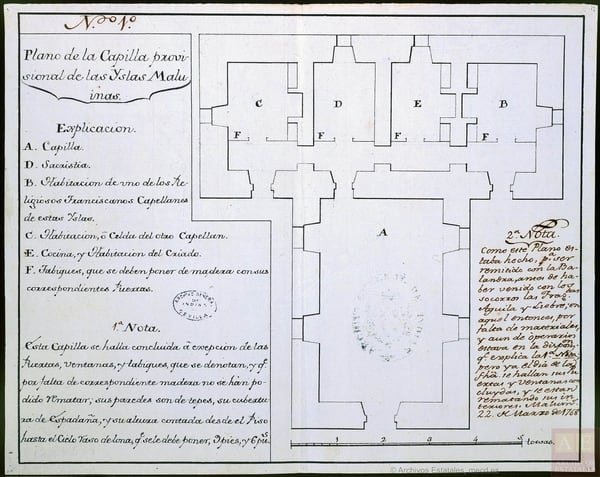 N.º 1.º
Plano de la Capilla provi-
sional de las Yslas Malu-
inas.
Explicacion.
A. Capilla.
D. Sacristia.
B. Habitacion de uno de los Re-
ligiosos Franciscanos Capellanes
de estas Yslas.
C. Habitacion, ò Celda del otro Capellan.
E. Cocina, y Habitacion del Criado.
F. Tabiques, que se deben poner de madera con sus
correspondientes Puertas.
ARCHIVO GENERAL
DE
INDIAS
SEVILLA
1.ª Nota.
Esta Capilla se halla concluida à excepcion de las
Puertas, ventanas, y tabiques, que se denotan, y q.e
por falta de correspondiente madera no se han po-
dido rematar; sus paredes son de tepes, su cubertu-
ra de Espadaña, y su altura contada desde el Piso
hasta el Cielo raso de lona, q.e se le debe poner, 9 pies, y 6 pul.s
C
D
E
B
F
F
F
F
A
2.ª Nota.
Como este Plano es-
taba hecho, p.a ser
remitido con la Ba-
landra, antes de ha-
ber venido con los
socorros las Frag.tas
Aguila y Liebre, en
aquel entonces, por
falta de materiales,
y aun de operarios
estava en la dispon.
q.e explica la 1.ª Nota
pero ya el dia de la
fha. se hallan sus Pu-
ertas y ventanas con-
cluydas, y se estan
rematando sus in-
teriores. Maluin.s
22 de Marzo de 1768
1 2 3 4 5 toesas.
© Archivos Estatales, mecd.es